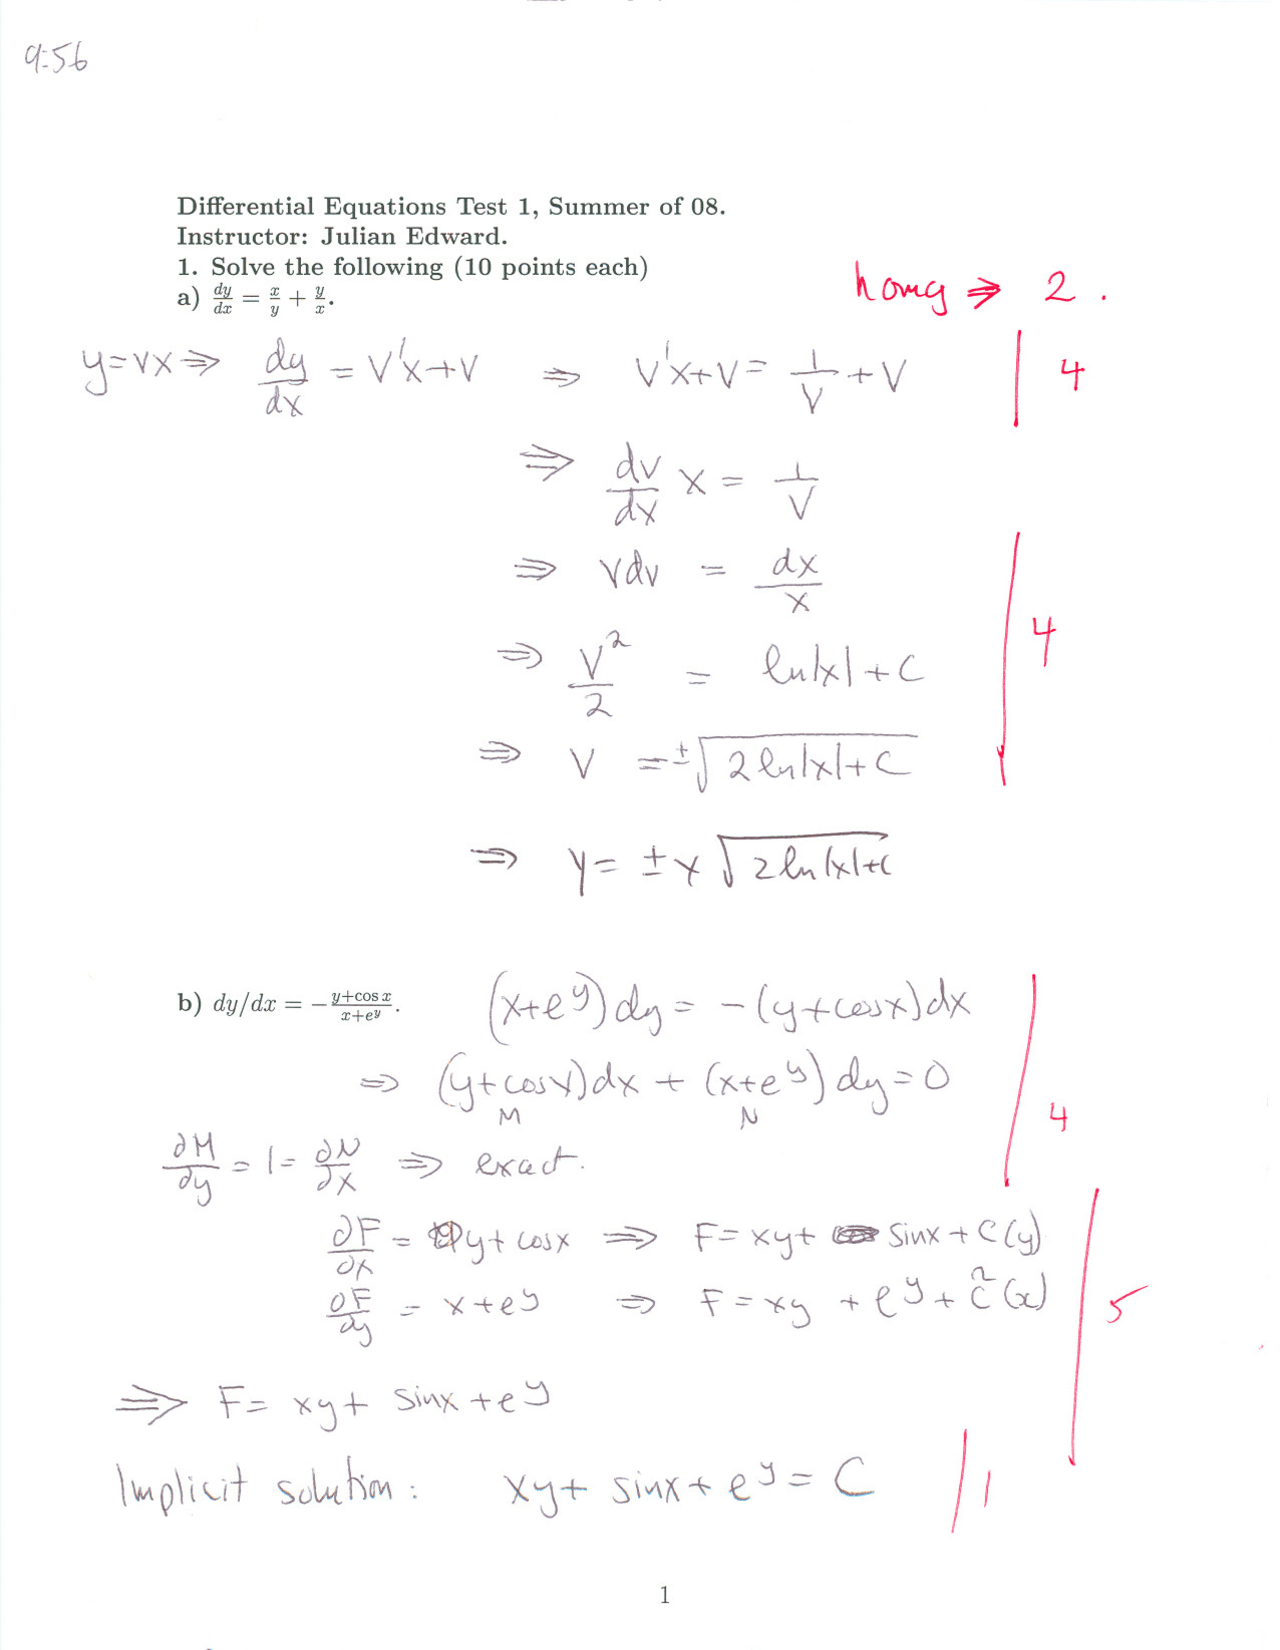 9:56
Differential Equations Test 1, Summer of 08.
Instructor: Julian Edward.
1. Solve the following (10 points each)
homg ⇒ 2.
a) dy/dx = x/y + y/x.
y=vx ⇒ dy/dx = v'x+v ⇒ v'x+v = 1/v + v | 4
⇒ dv/dx x = 1/v
⇒ vdv = dx/x
⇒ v²/2 = ln|x| + C | 4
⇒ v = ±√(2ln|x|+C)
⇒ y = ±x√(2ln|x|+C)
b) dy/dx = −(y+cos x)/(x+e^y). (x+e^y)dy = −(y+cosx)dx
⇒ (y+cosx)dx + (x+e^y)dy = 0
M N | 4
∂M/∂y = 1 = ∂N/∂x ⇒ exact.
∂F/∂x = y+cosx ⇒ F = xy + sinx + C(y)
∂F/∂y = x+e^y ⇒ F = xy + e^y + C̃(x) | 5
⇒ F = xy + sinx + e^y
Implicit solution: xy + sinx + e^y = C | 1
1